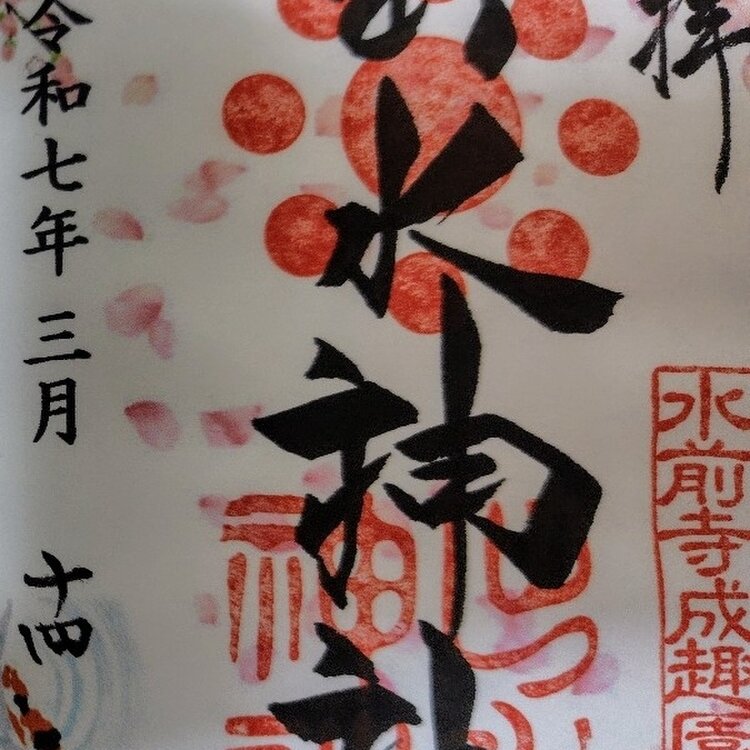 拝
水前寺成趣園
出水神社
令和七年三月十四